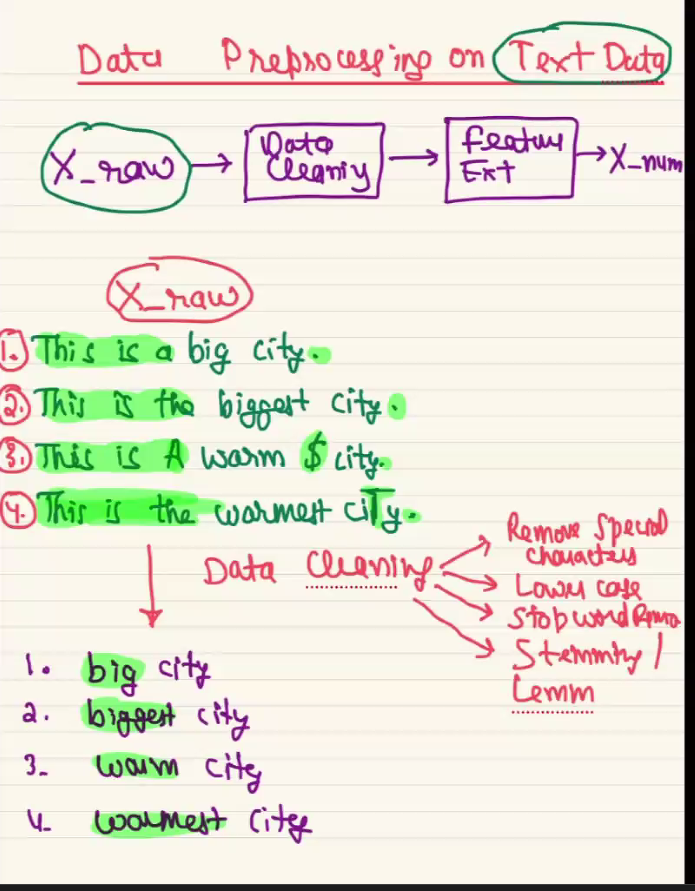 Data Preprocessing on Text Data
X_raw → Data Cleaning → Featur Ext → X_num
X_raw
1. This is a big city.
2. This is the biggest city.
3. This is A warm $ city.
4. This is the warmest ciTy.
Data Cleaning
Remove Special
characters
Lower case
Stopword Remo
Stemming /
Lemm
1. big city
2. biggest city
3- warm city
4- warmest city